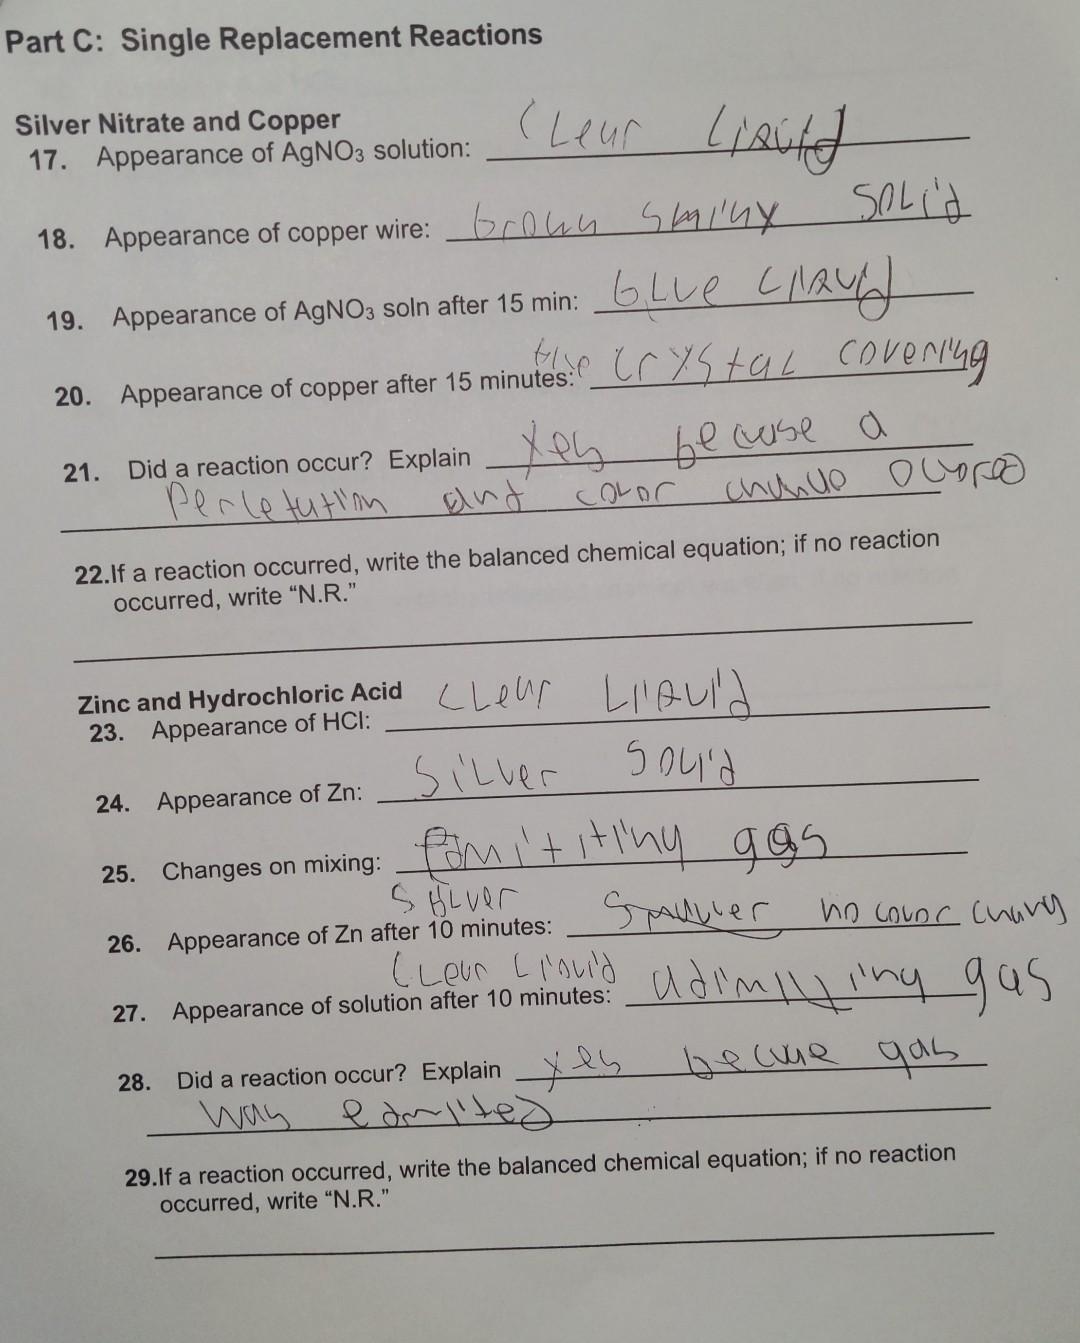 Part C: Single Replacement Reactions
Silver Nitrate and Copper
17. Appearance of AgNO3 solution: Clear Liquid
18. Appearance of copper wire: brown shiny solid
19. Appearance of AgNO3 soln after 15 min: blue liquid
20. Appearance of copper after 15 minutes: crystal covering
21. Did a reaction occur? Explain yes because a
and color
22.If a reaction occurred, write the balanced chemical equation; if no reaction
occurred, write “N.R.”
Zinc and Hydrochloric Acid
23. Appearance of HCl: Clear Liquid
24. Appearance of Zn: Silver Solid
25. Changes on mixing: gas
Silver
26. Appearance of Zn after 10 minutes: smaller no color
Clear Liquid
27. Appearance of solution after 10 minutes: gas
28. Did a reaction occur? Explain yes gas
was
29.If a reaction occurred, write the balanced chemical equation; if no reaction
occurred, write “N.R.”